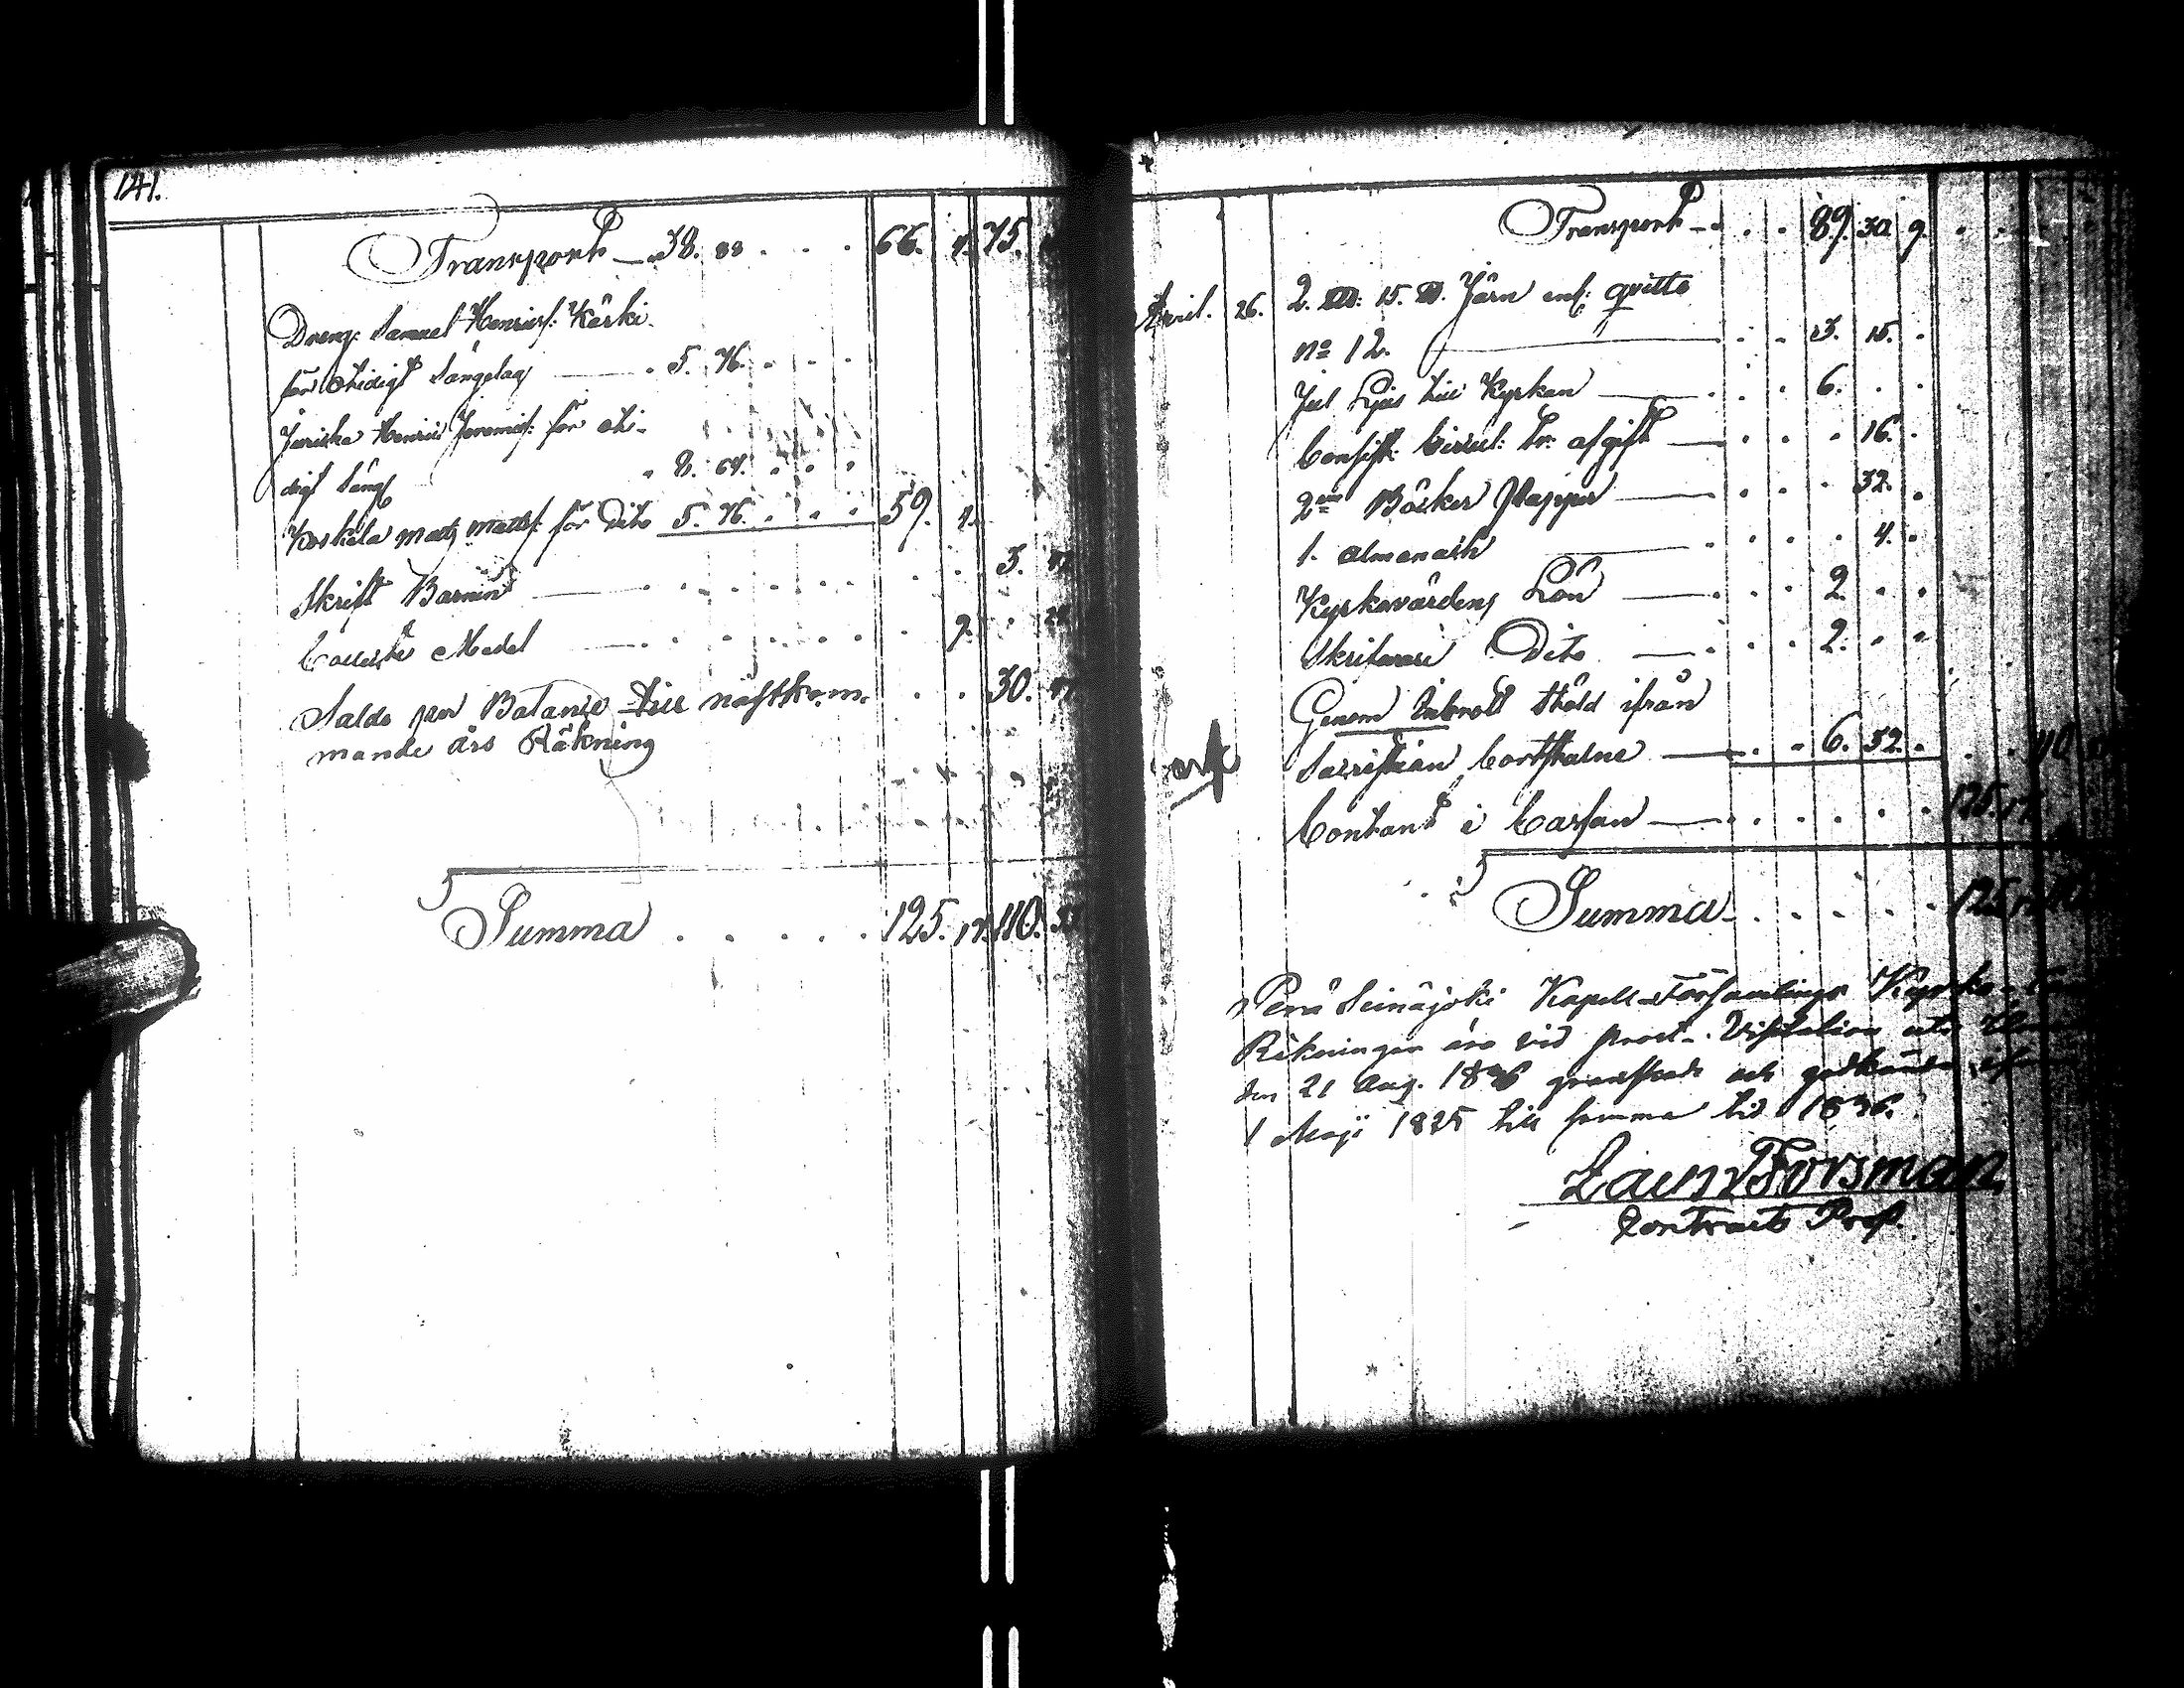 141.
Transport 38. 88 66. 4. 75.
Dreng: Samuel Henrics: Käski
för otidigt Sängelag 5. 76.
Henric Jeremiæs: för oti-
digt Säng 8. 64.
Koskela Matts Matts: för Dito 5. 76. 59. 4.
Skrift Barnen 3.
Collecte Medel 9.
Saldo per Balance till nästkom-
mande års Räkning 30.
Summa 125. 17. 110.
Transport 89. 30. 9.
April. 26. 2. 15. Järn enl: qvitto
No 12. 3. 15.
Jul Ljus till Kyrkan 6.
Consist: Circul: Tr: afgift 16.
2ne Böcker Papper 32.
1. Almanach 4.
Kyrkovärdens Lön 2.
Skrifvare Dito 2.
Genom Inbrott stöld ifrån
Sacristian bortstulne 6. 32. 110
Contant i Cassan 125. 17
Summa 125. 17
Perä Seinäjoki Kapell-Församlings Kyrko-
Räkningar äro vid Prost-Visitation
den 21 Aug. 1836 granskade och godkända ifrån
1 Maji 1825 till samma tid 1836.
Forsman
Contracts Prost